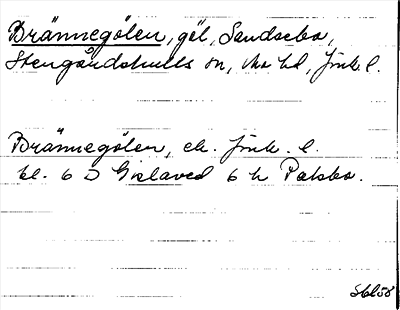 Brännegölen, göl, Sandsebo,
Stengårdshults sn, Mo hd, Jönk. l.
Brännegölen, ek. Jönk. l.
bl. 6 D Gislaved 6 h Palsbo.
Sbl 58